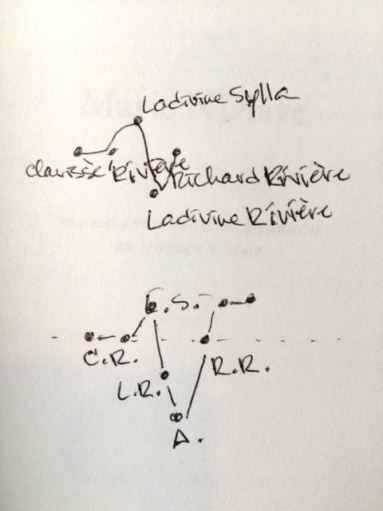 Ladivine Sylla
Clarisse Rivière
Richard Rivière
Ladivine Rivière
L.S.
C.R.
R.R.
L.R.
A.